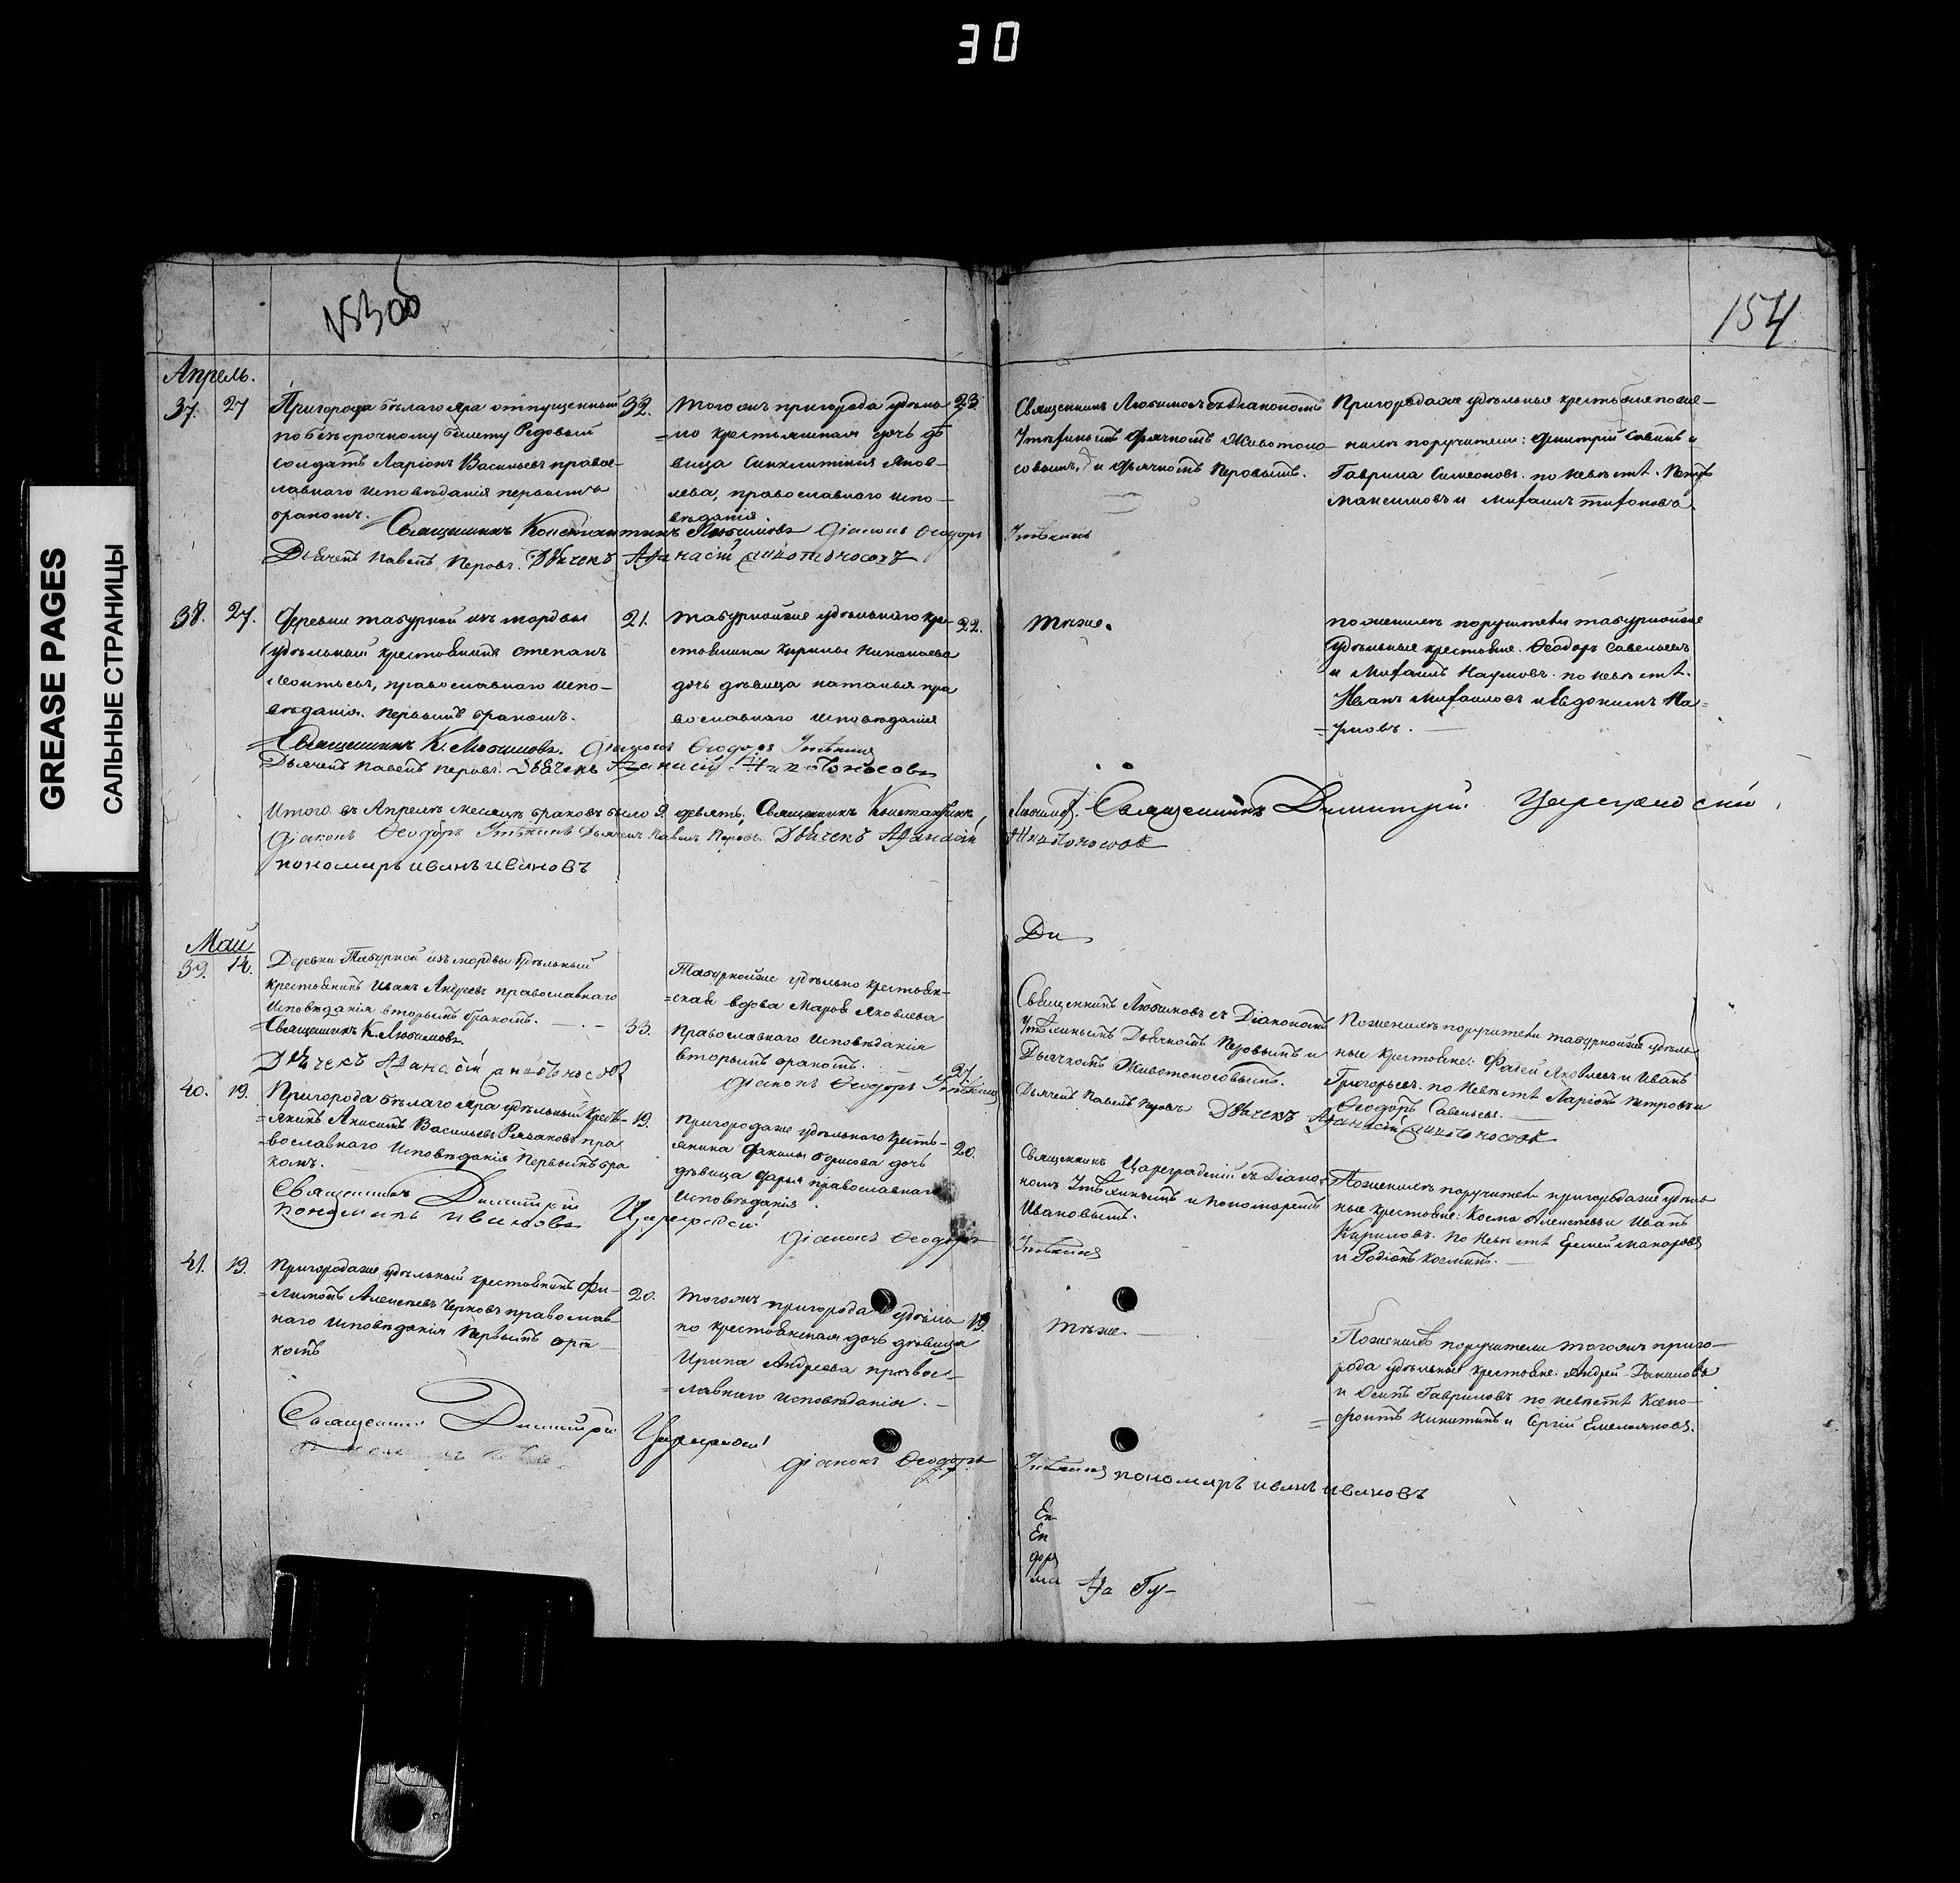 30
GREASE PAGES
САЛЬНЫЕ СТРАНИЦЫ
154
Апрель.
37. 27
Пригорода бѣлаго яра отпущенный
по безсрочному билету Редовый
солдатъ Ларіонъ Васильевъ правос-
лавнаго исповѣданія первымъ
бракомъ.
32.
Тогожъ пригорода удѣльно
=но крестьянская дочь дѣ
вица Синклитикія Яков-
лева, православнаго испо-
вѣданія
23
Священникъ Любимовъ съ Діакономъ
Утѣхинымъ Дьячкомъ Животоно-
совымъ, и Дьячкомъ Перовымъ.
Пригородаже удѣльные крестьяне по же-
нихѣ поручители: Димитрій Савинъ и
Гаврила Симеоновъ. по невѣстѣ. Петръ
Максимовъ и Михаилъ
Священникъ Константинъ Любимовъ Діаконъ Ѳеодоръ Утѣхинъ
Дьячекъ Павелъ Перовъ. Дьячекъ Афанасій Животоносовъ
38. 27.
Деревни Табурной изъ мордвы
удѣльный крестьянинъ Степанъ
православнаго испо-
вѣданія. Первымъ бракомъ.
21.
Табурнойже удѣльнаго кре-
стьянина Кирилы Николаева
дочь дѣвица Наталья пра
вославнаго исповѣданія
22.
Тѣже.
по женихѣ поручители Табурнойже
удѣльные крестьяне. Ѳеодоръ Савельевъ
и Михаилъ Наумовъ. по невѣстѣ.
Иванъ Михаиловъ и Евдокимъ На-
=умовъ.
=Священникъ К. Любимовъ. Діаконъ Ѳеодоръ Утѣхинъ
Дьячекъ Павелъ Перовъ. Дьячекъ Афанасій Животоносовъ
Итого въ Апрелѣ месяцѣ браковъ было 9. девять. Священникъ Константинъ Любимовъ. Священникъ Димитрій Цареградскій
Діаконъ Ѳеодоръ Утѣхинъ Дьячекъ Павелъ Перовъ. Дьячекъ Афанасій Животоносовъ
пономарь иванъ ивановъ
Май
Ди
39. 14.
Деревни Табурной изъ мордвы удѣльный
крестьянинъ Иванъ Андреевъ православнаго
Исповѣданія вторымъ бракомъ.
=Священникъ К. Любимовъ
Дьячекъ Афанасій Животоносовъ
33.
Табурнойже удѣльно крестьян-
=ская вдова Марѳа Яковлева
Православнаго Исповѣданія
вторымъ бракомъ.
27.
Діаконъ Ѳеодоръ Утѣхинъ
Священникъ Любимовъ съ Діакономъ
Утѣхинымъ Дьячкомъ Перовымъ и
Дьячкомъ Животоносовымъ.
Дьячекъ Павелъ Перовъ Дьячекъ Афанасій Животоносовъ
По женихѣ поручители Табурнойже удѣль
ные крестьяне: Фадей Яковлевъ и Иванъ
Григорьевъ. по невѣстѣ Ларіонъ Петровъ и
Ѳеодоръ Савельевъ.
40. 19.
Пригорода бѣлаго яра удѣльный крестья-
=янинъ Анисимъ Васильевъ пра
=вославнаго Исповѣданія Первымъ бра
комъ.
19.
Пригородаже удѣльнаго кресть-
янина Данилы Борисова дочь
дѣвица Дарья православнаго
исповѣданія.
20.
Священникъ Цареградскій съ Діако-
номъ Утѣхинымъ и пономаремъ
Ивановымъ.
По женихѣ поручители пригородаже удѣль
ные крестьяне: Косма Алексѣевъ и Иванъ
Кириловъ. По невѣстѣ Еремей Макаровъ
и Родіонъ Косминъ.
Священникъ Димитрій Цареградскій
Пономарь Ивановъ
Діаконъ Ѳеодоръ Утѣхинъ
41. 19.
Пригородаже удѣльный крестьянинъ Фи-
=лимонъ Алексѣевъ Черновъ православ
наго исповѣданія Первымъ бра
комъ
20.
Тогожъ пригорода удѣльно
но крестьянская дочь дѣвица
Ирина Андреева правос-
=лавнаго исповѣданія.
19.
Тѣже.
По женихѣ поручители тогожъ приго-
рода удѣльные крестьяне. Андрей Даниловъ
и Осипъ Гавриловъ по невѣстѣ Ксено-
=фонтъ Никитинъ и Сергій Емельяновъ.
Священникъ Димитрій Цареградскій
Діаконъ Ѳеодоръ Утѣхинъ пономарь иванъ ивановъ
Ен
Ен